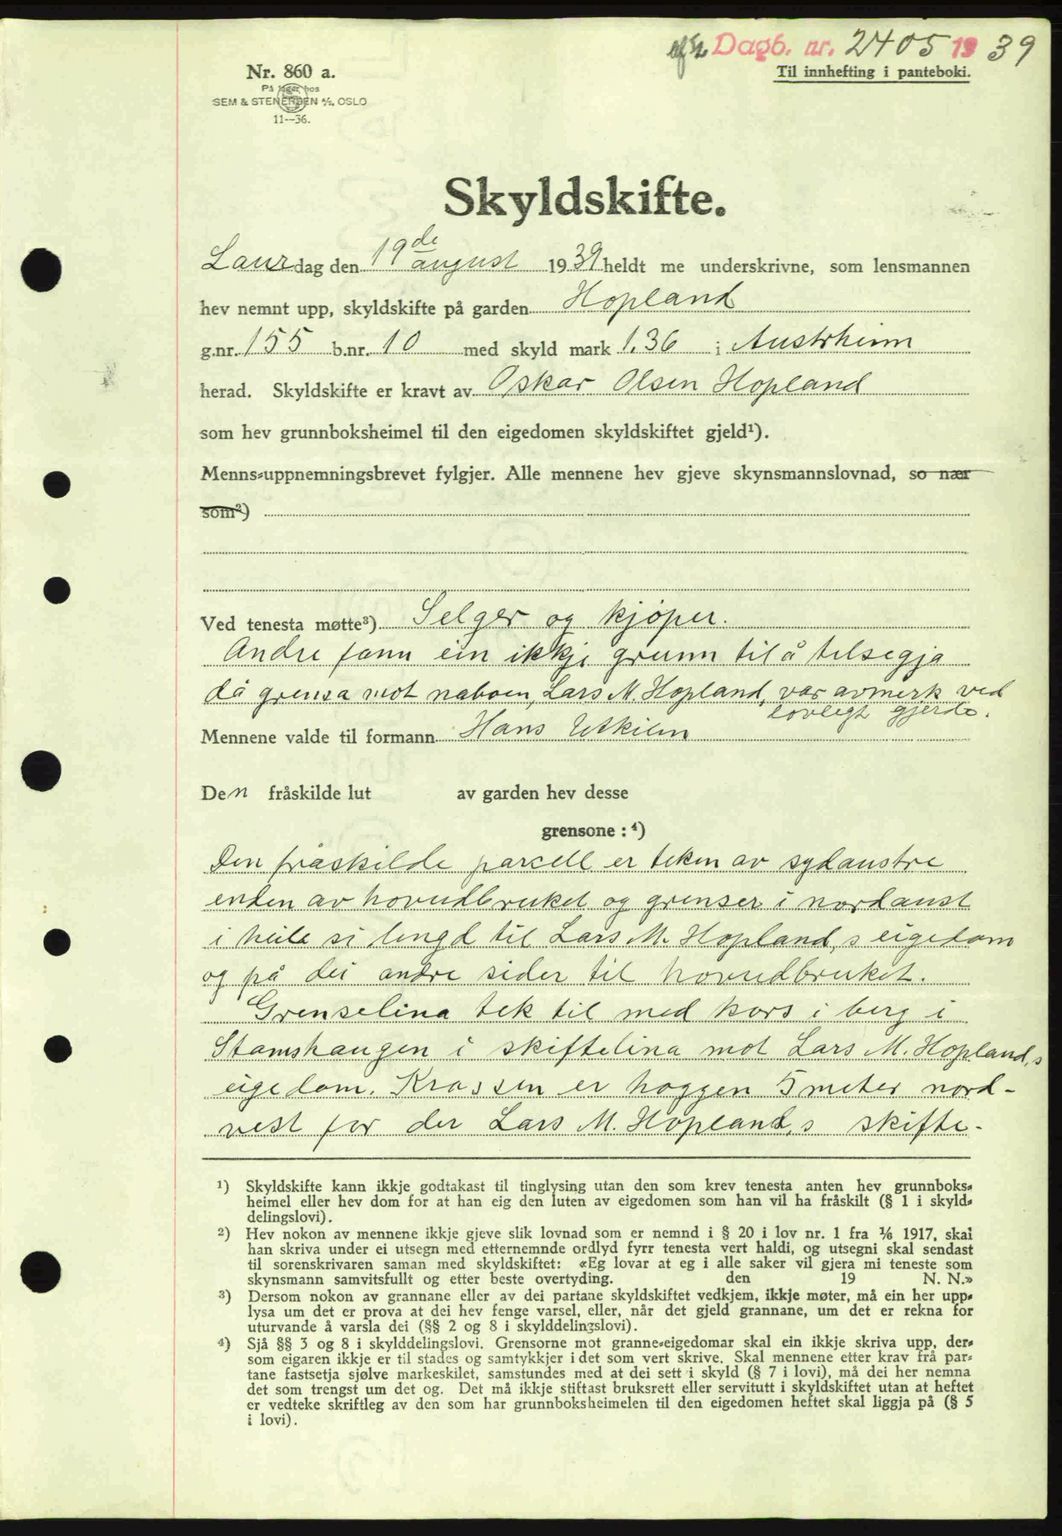 Dagb. nr. 2405 1939
Nr. 860 a.
Til innhefting i panteboki.
På lager hos
SEM & STENERSEN A/S, OSLO
11—36.
Skyldskifte.
Laurdag den 19de august 1939 heldt me underskrivne, som lensmannen
hev nemnt upp, skyldskifte på garden Hopland
g.nr. 155 b.nr. 10 med skyld mark 1.36 i Austrheim
herad. Skyldskifte er kravt av Oskar Olsen Hopland
som hev grunnboksheimel til den eigedomen skyldskiftet gjeld¹).
Menns-uppnemningsbrevet fylgjer. Alle mennene hev gjeve skynsmannslovnad, so nær
som²)
Ved tenesta møtte³) Selger og kjøper.
Andre fann ein ikkje grunn til å tilsegja
då grensa mot naboen, Lars M. Hopland, var avmerk ved
lovlegt gjerde.
Mennene valde til formann Hans Utkilen
Den fråskilde lut av garden hev desse
grensone:⁴)
Den fråskilde parcell er teken av sydaustre
enden av hovudbruket og grenser i nordaust
i heile si lengd til Lars M. Hopland,s eigedom
og på dei andre sider til hovudbruket.
Grenselina tek til med kors i berg i
Stamshaugen i skiftelina mot Lars M. Hopland,s
eigedom. Krossen er hoggen 5 meter nord-
vest for der Lars M. Hopland,s skifte-
¹) Skyldskifte kann ikkje godtakast til tinglysing utan den som krev tenesta anten hev grunnboks-
heimel eller hev dom for at han eig den luten av eigedomen som han vil ha fråskilt (§ 1 i skyld-
delingslovi).
²) Hev nokon av mennene ikkje gjeve slik lovnad som er nemnd i § 20 i lov nr. 1 fra 1/6 1917, skal
han skriva under ei utsegn med etternemnde ordlyd fyrr tenesta vert haldi, og utsegni skal sendast
til sorenskrivaren saman med skyldskiftet: «Eg lovar at eg i alle saker vil gjera mi teneste som
skynsmann samvitsfullt og etter beste overtyding. den 19 N. N.»
³) Dersom nokon av grannane eller av dei partane skyldskiftet vedkjem, ikkje møter, må ein her upp-
lysa um det er prova at dei hev fenge varsel, eller, når det gjeld grannane, um det er rekna for
uturvande å varsla dei (§§ 2 og 8 i skylddelingslovi).
⁴) Sjå §§ 3 og 8 i skylddelingslovi. Grensorne mot granne-eigedomar skal ein ikkje skriva upp, der-
som eigaren ikkje er til stades og samtykkjer i det som vert skrive. Skal mennene etter krav frå par-
tane fastsetja sjølve markeskilet, samstundes med at dei sett i skyld (§ 7 i lovi), må dei her nemna
det som trengst um det og. Det må ikkje stiftast bruksrett eller servitutt i skyldskiftet utan at heftet
er vedteke skriftleg av den som har grunnboksheimelen til den eigedomen heftet skal liggja på (§ 5
i lovi).